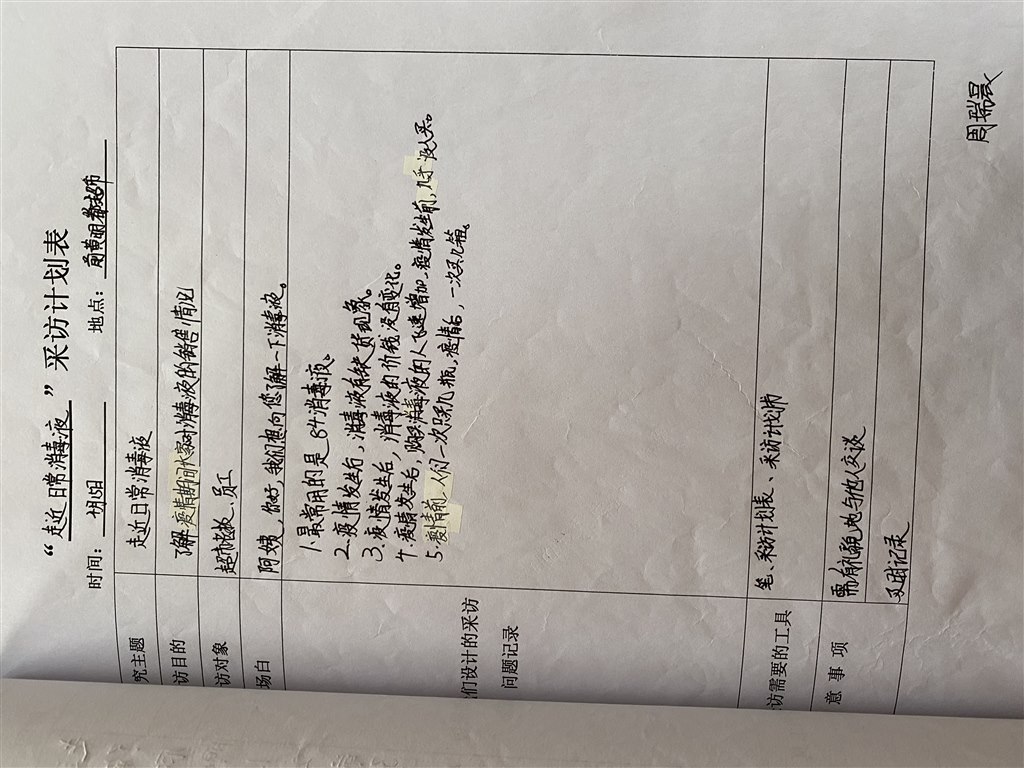 “走近日常消毒液”采访计划表
时间： 地点：
究主题 走近日常消毒液
访目的 了解疫情期间大家对消毒液的销售情况
访对象 超市老板、员工
场白 阿姨，你好，我们想向您了解一下消毒液。
们设计的采访
问题记录
1.最常用的是84消毒液。
2.疫情发生后，消毒液有缺货现象。
3.疫情发生后，消毒液的价钱没有变化。
4.疫情发生后，购买消毒液的人飞速增加，疫情发生前，几乎没人买。
5.疫情前，人们一次只买几瓶，疫情后，一次买几箱。
访需要的工具 笔、采访计划表、采访计划书
意事项 需有礼貌地与他人交谈
及时记录
周瑞晨